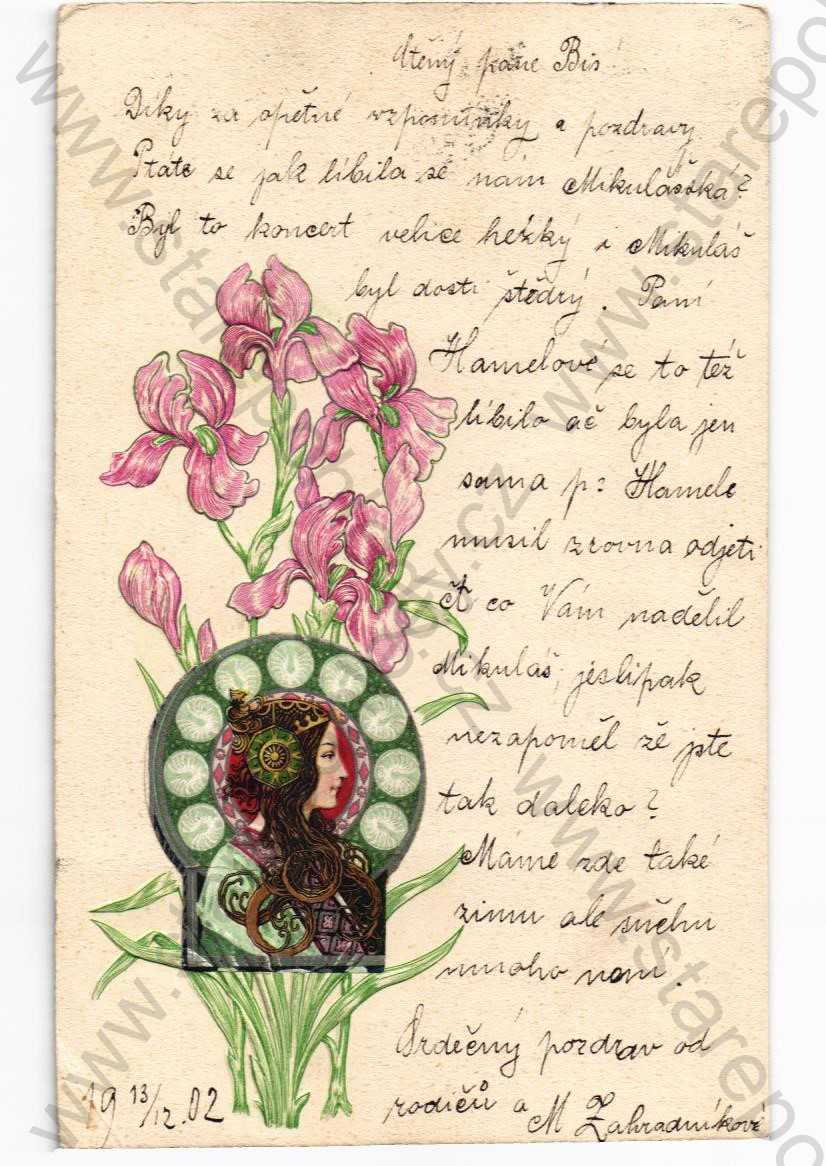 Ctěný pane Bis!
Díky za opětné vzpomínky a pozdravy
Ptáte se jak líbila se nám Mikulášská?
Byl to koncert velice hezký i Mikuláš
byl dosti štědrý. Paní
Hamelové se to též
líbilo ač byla jen
sama p: Hamele
musil zrovna odjeti
A co Vám nadělil
Mikuláš, jeslipak
nezapoměl že jste
tak daleko?
Máme zde také
zimu ale sněhu
mnoho není.
Srdečný pozdrav od
rodičů a M Zahradníkové
19 13/12. 02
www.starepohledy.cz